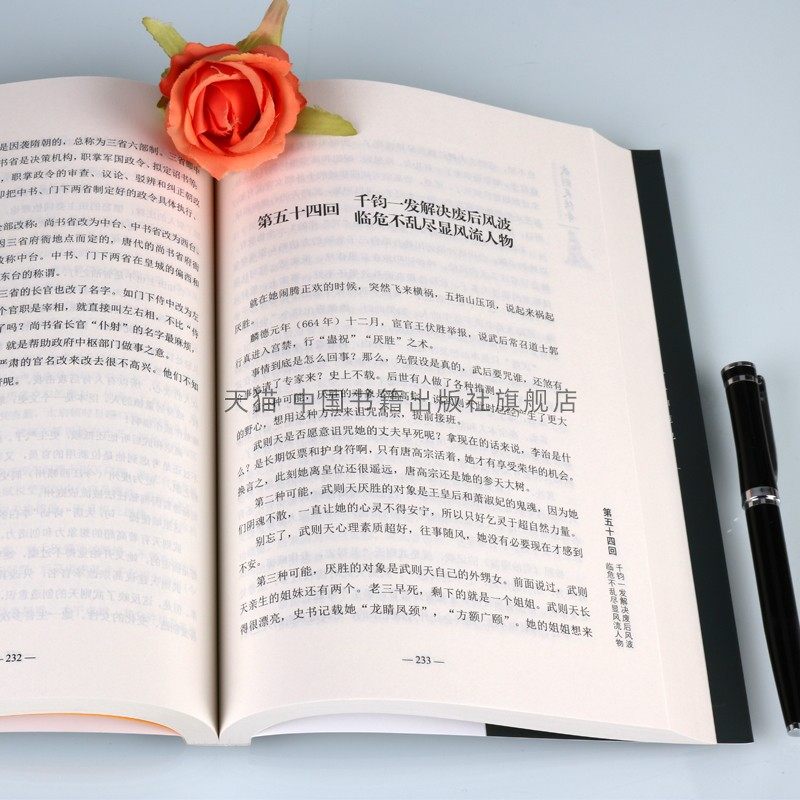 是因袭隋朝的，总称为三省六部制、三省即中
书省是决策机构，职掌军国政令、拟定诏书等；
，职掌政令的审查、议论、驳辨和纠正朝政
即把中书、门下两省制定好的政令具体执行、
全部改称：尚书省改为中台、中书省改为西台、
因三省府衙地点而定的，唐代的尚书省府衙
改称中台。中书、门下两省在皇城的偏西和
东台的称谓。
三省的长官也改了名字。如门下侍中改为左
个官职是宰相，就直接叫左右相，不比“侍
了吗？尚书省长官“仆射”的名字最麻烦，
，就是帮助政府中枢部门做事之意。
严肃的官名改来改去很不高兴。他们不知
呢。
232 —
第五十四回 千钧一发解决废后风波
临危不乱尽显风流人物
就在她闹腾正欢的时候，突然飞来横祸，五指山压顶，说起来祸起
厌胜。
麟德元年（664年）十二月，宦官王伏胜举报，说武后常召道士郭
行真进入宫禁，行“蛊祝”“厌胜”之术。
事情到底是怎么回事？那么，先假设是真的，武后要咒谁，还煞有
介事地请了专家来？史上不载。后世有人做了各种推测
天猫 中国书籍出版社旗舰店
的野心，想用这种方法来诅咒高宗，提前接班。
武则天是否愿意诅咒她的丈夫早死呢？拿现在的话来说，李治是什
么？是长期饭票和护身符啊，只有唐高宗活着，她才有享受荣华的机会。
换言之，此刻她离皇位还很遥远，唐高宗还是她的参天大树。
第二种可能，武则天厌胜的对象是王皇后和萧淑妃的鬼魂，因为她
们阴魂不散，一直让她的心灵不得安宁，所以只好乞灵于超自然力量。
别忘了，武则天心理素质超好，往事随风，她没有必要现在才感到
不安。
第三种可能，厌胜的对象是武则天自己的外甥女。前面说过，武则
天亲生的姐妹还有两个。老三早死，剩下的就是一个姐姐。武则天长
得很漂亮，史书记载她“龙睛凤颈”，“方额广颐”。她的姐姐想来
— 233 —
第五十四回
千钧一发解决废后风波
临危不乱尽显风流人物